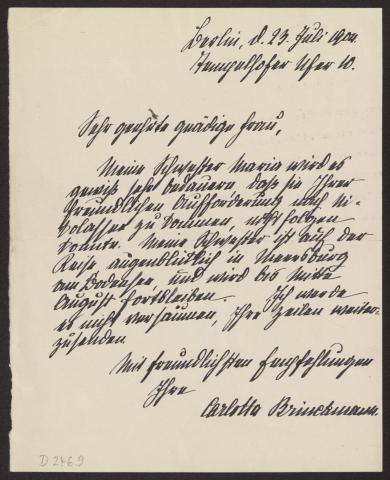 Berlin, d. 23. Juli 1904.
Tempelhofer Ufer 10.
Sehr geehrte gnädige Frau,
Meine Schwester Maria wird es
gewiß sehr bedauern, daß sie Ihrer
freundlichen Aufforderung nach Ni-
kolassee zu kommen, nicht folgen
konnte. Meine Schwester ist auf der
Reise augenblicklich in Meersburg
am Bodensee und wird bis Mitte
August fortbleiben. Ich werde
es nicht versäumen, Ihre Zeilen weiter-
zusenden.
Mit freundlichsten Empfehlungen
Ihre
Carlotta Brinckmann.
D 2469